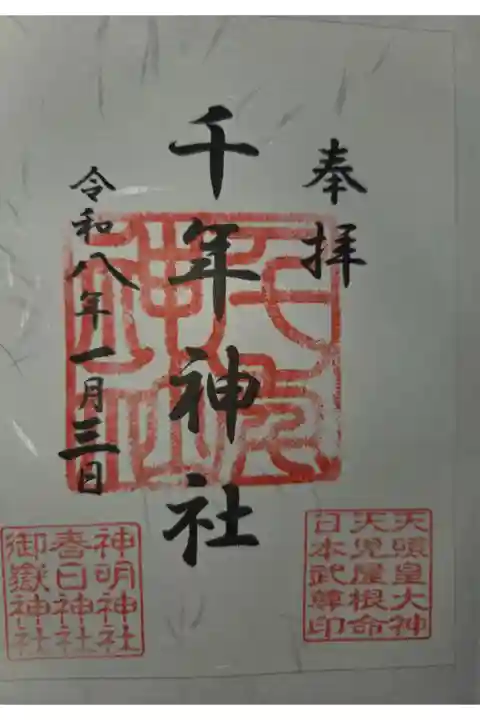 奉拝
千年神社
令和八年一月三日
千年
神社
天頭皇大神
天児屋根命
日本武尊印
神明神社
春日神社
御嶽神社